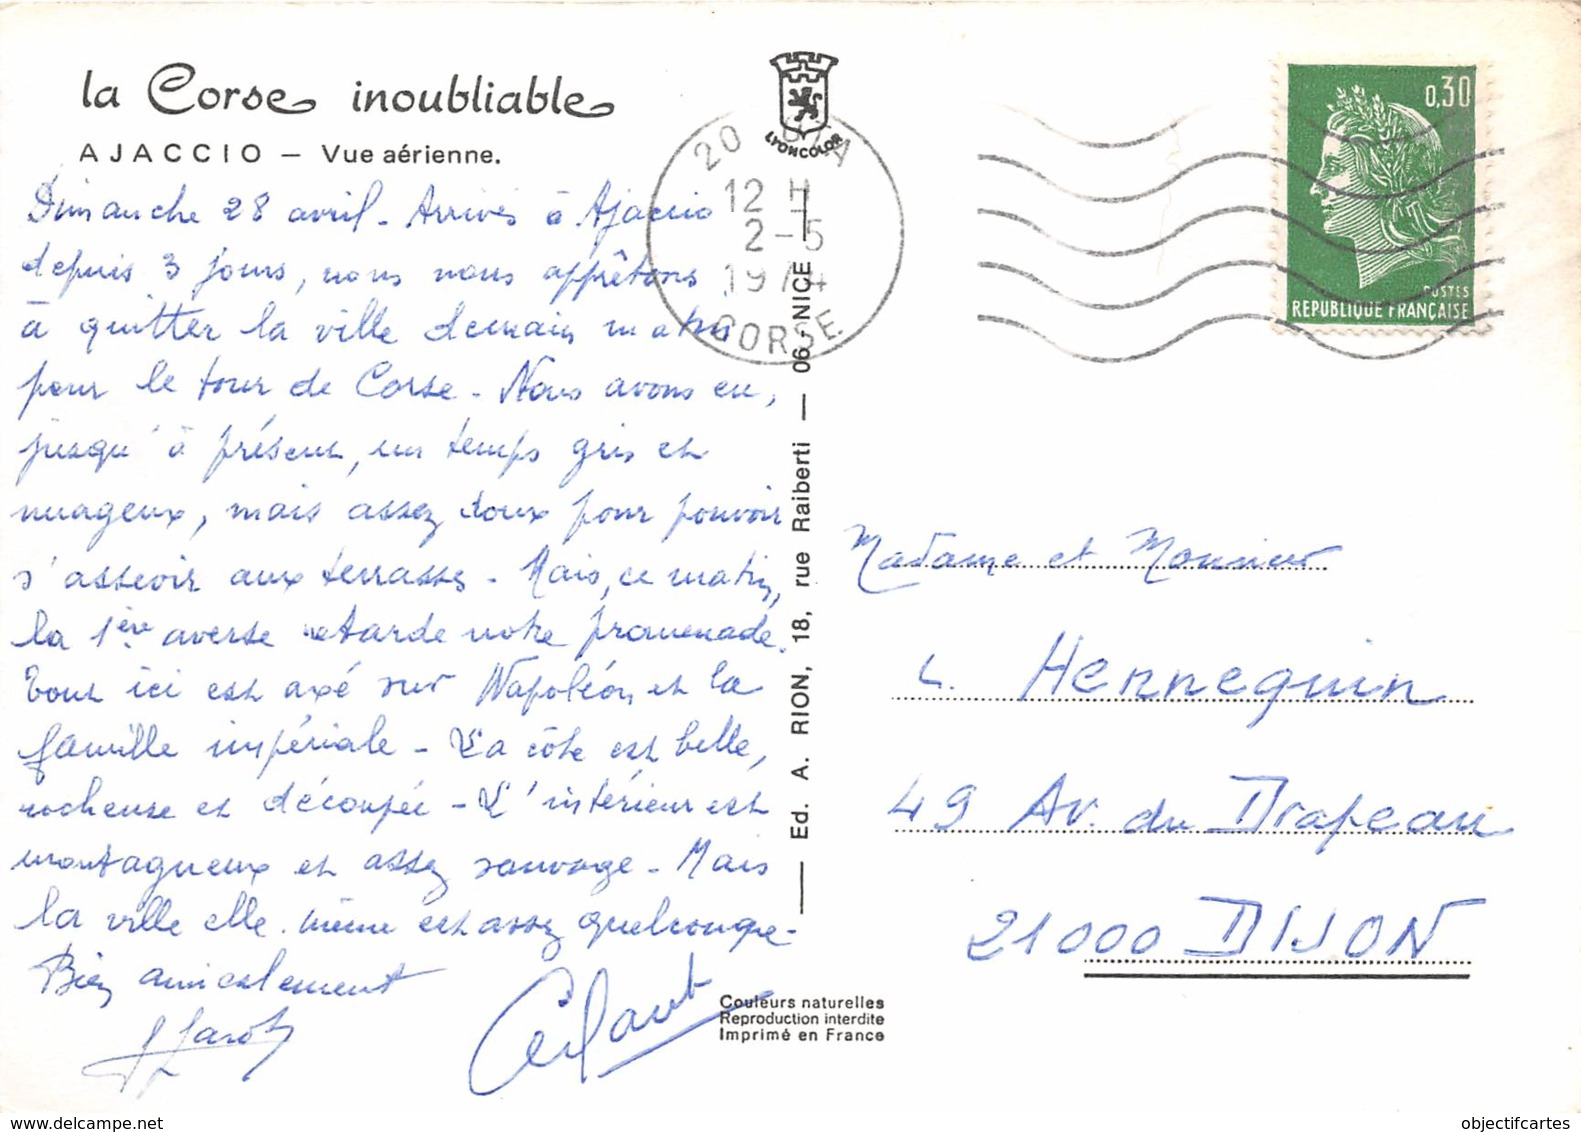 la Corse inoubliable
AJACCIO — Vue aérienne.
Dimanche 28 avril - Arrivés à Ajaccio
depuis 3 jours, nous nous apprêtons
à quitter la ville demain matin
pour le tour de Corse - Nous avons eu,
jusqu'à présent, un temps gris et
nuageux, mais assez doux pour pouvoir
s'asseoir aux terrasses - Mais, ce matin,
la 1ère averse retarde notre promenade.
Tout ici est axé sur Napoléon et la
famille impériale - La côte est belle,
rocheuse et découpée - L'intérieur est
montagneux et assez sauvage - Mais
la ville elle même est assez quelconque -
Bien amicalement
LYONCOLOR
12 H
2-5
1974
CORSE
Ed. A. RION, 18, rue Raiberti — 06 - NICE
0,30
POSTES
REPUBLIQUE FRANÇAISE
Madame et Monsieur
L. Hennequin
49 Av. du Drapeau
21000 DIJON
Couleurs naturelles
Reproduction interdite
Imprimé en France
www.delcampe.net
objectifcartes